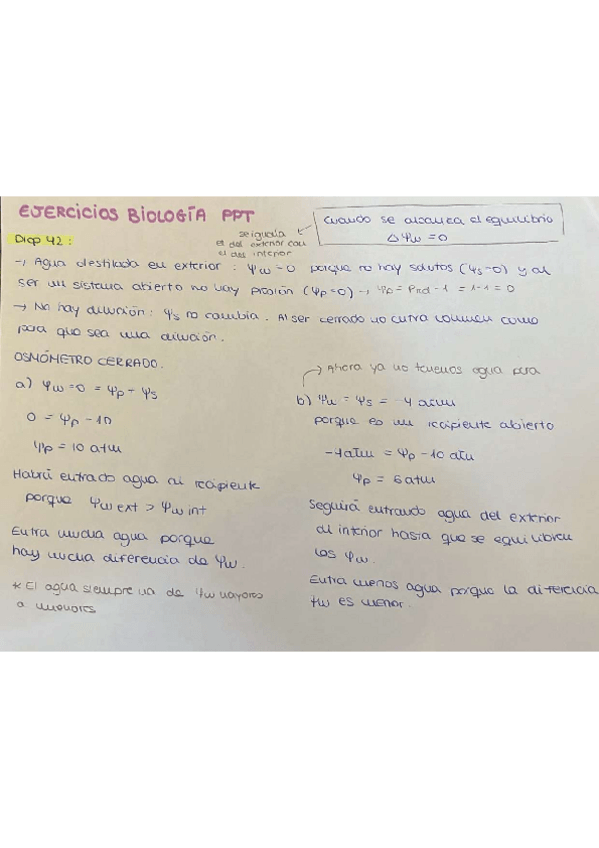 EJERCICIOS BIOLOGÍA PPT
Cuando se alcanza el equilibrio
ΔΨw = 0
se iguala
el del exterior con
el del interior
Diap 42:
→ Agua destilada en exterior: Ψw = 0 porque no hay solutos (Ψs = 0) y al
ser un sistema abierto no hay presión (Ψp = 0) → Ψp = Prd - 1 = 1 - 1 = 0
→ No hay dilución: Ψs no cambia. Al ser cerrado no entra volumen como
para que sea una dilución.
OSMÓMETRO CERRADO.
a) Ψw = 0 = Ψp + Ψs
0 = Ψp - 10
Ψp = 10 atm
Habrá entrado agua al recipiente
porque Ψw ext > Ψw int
Entra mucha agua porque
hay mucha diferencia de Ψw.
* El agua siempre va de Ψw mayores
a menores
Ahora ya no tenemos agua pura
b) Ψw = Ψs = -4 atm
porque es un recipiente abierto
-4 atm = Ψp - 10 atm
Ψp = 6 atm
Seguirá entrando agua del exterior
al interior hasta que se equilibren
los Ψw.
Entra menos agua porque la diferencia
Ψw es menor.